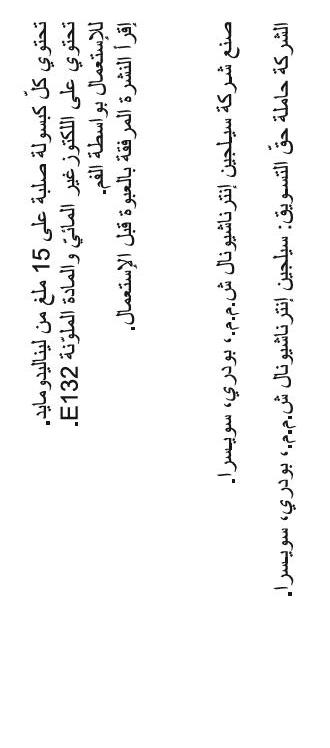 تحتوي كلّ كبسولة صلبة على 15 ملغ من ليناليدومايد.
تحتوي على اللكتوز غير المائيّ والمادة الملوّنة E132.
للإستعمال بواسطة الفم.
إقرأ النشرة المرفقة بالعبوة قبل الإستعمال.
صنع شركة سيلجين إنترناشيونال ش.م.م.، بودري، سويسرا.
الشركة حاملة حقّ التسويق: سيلجين إنترناشيونال ش.م.م.، بودري، سويسرا.